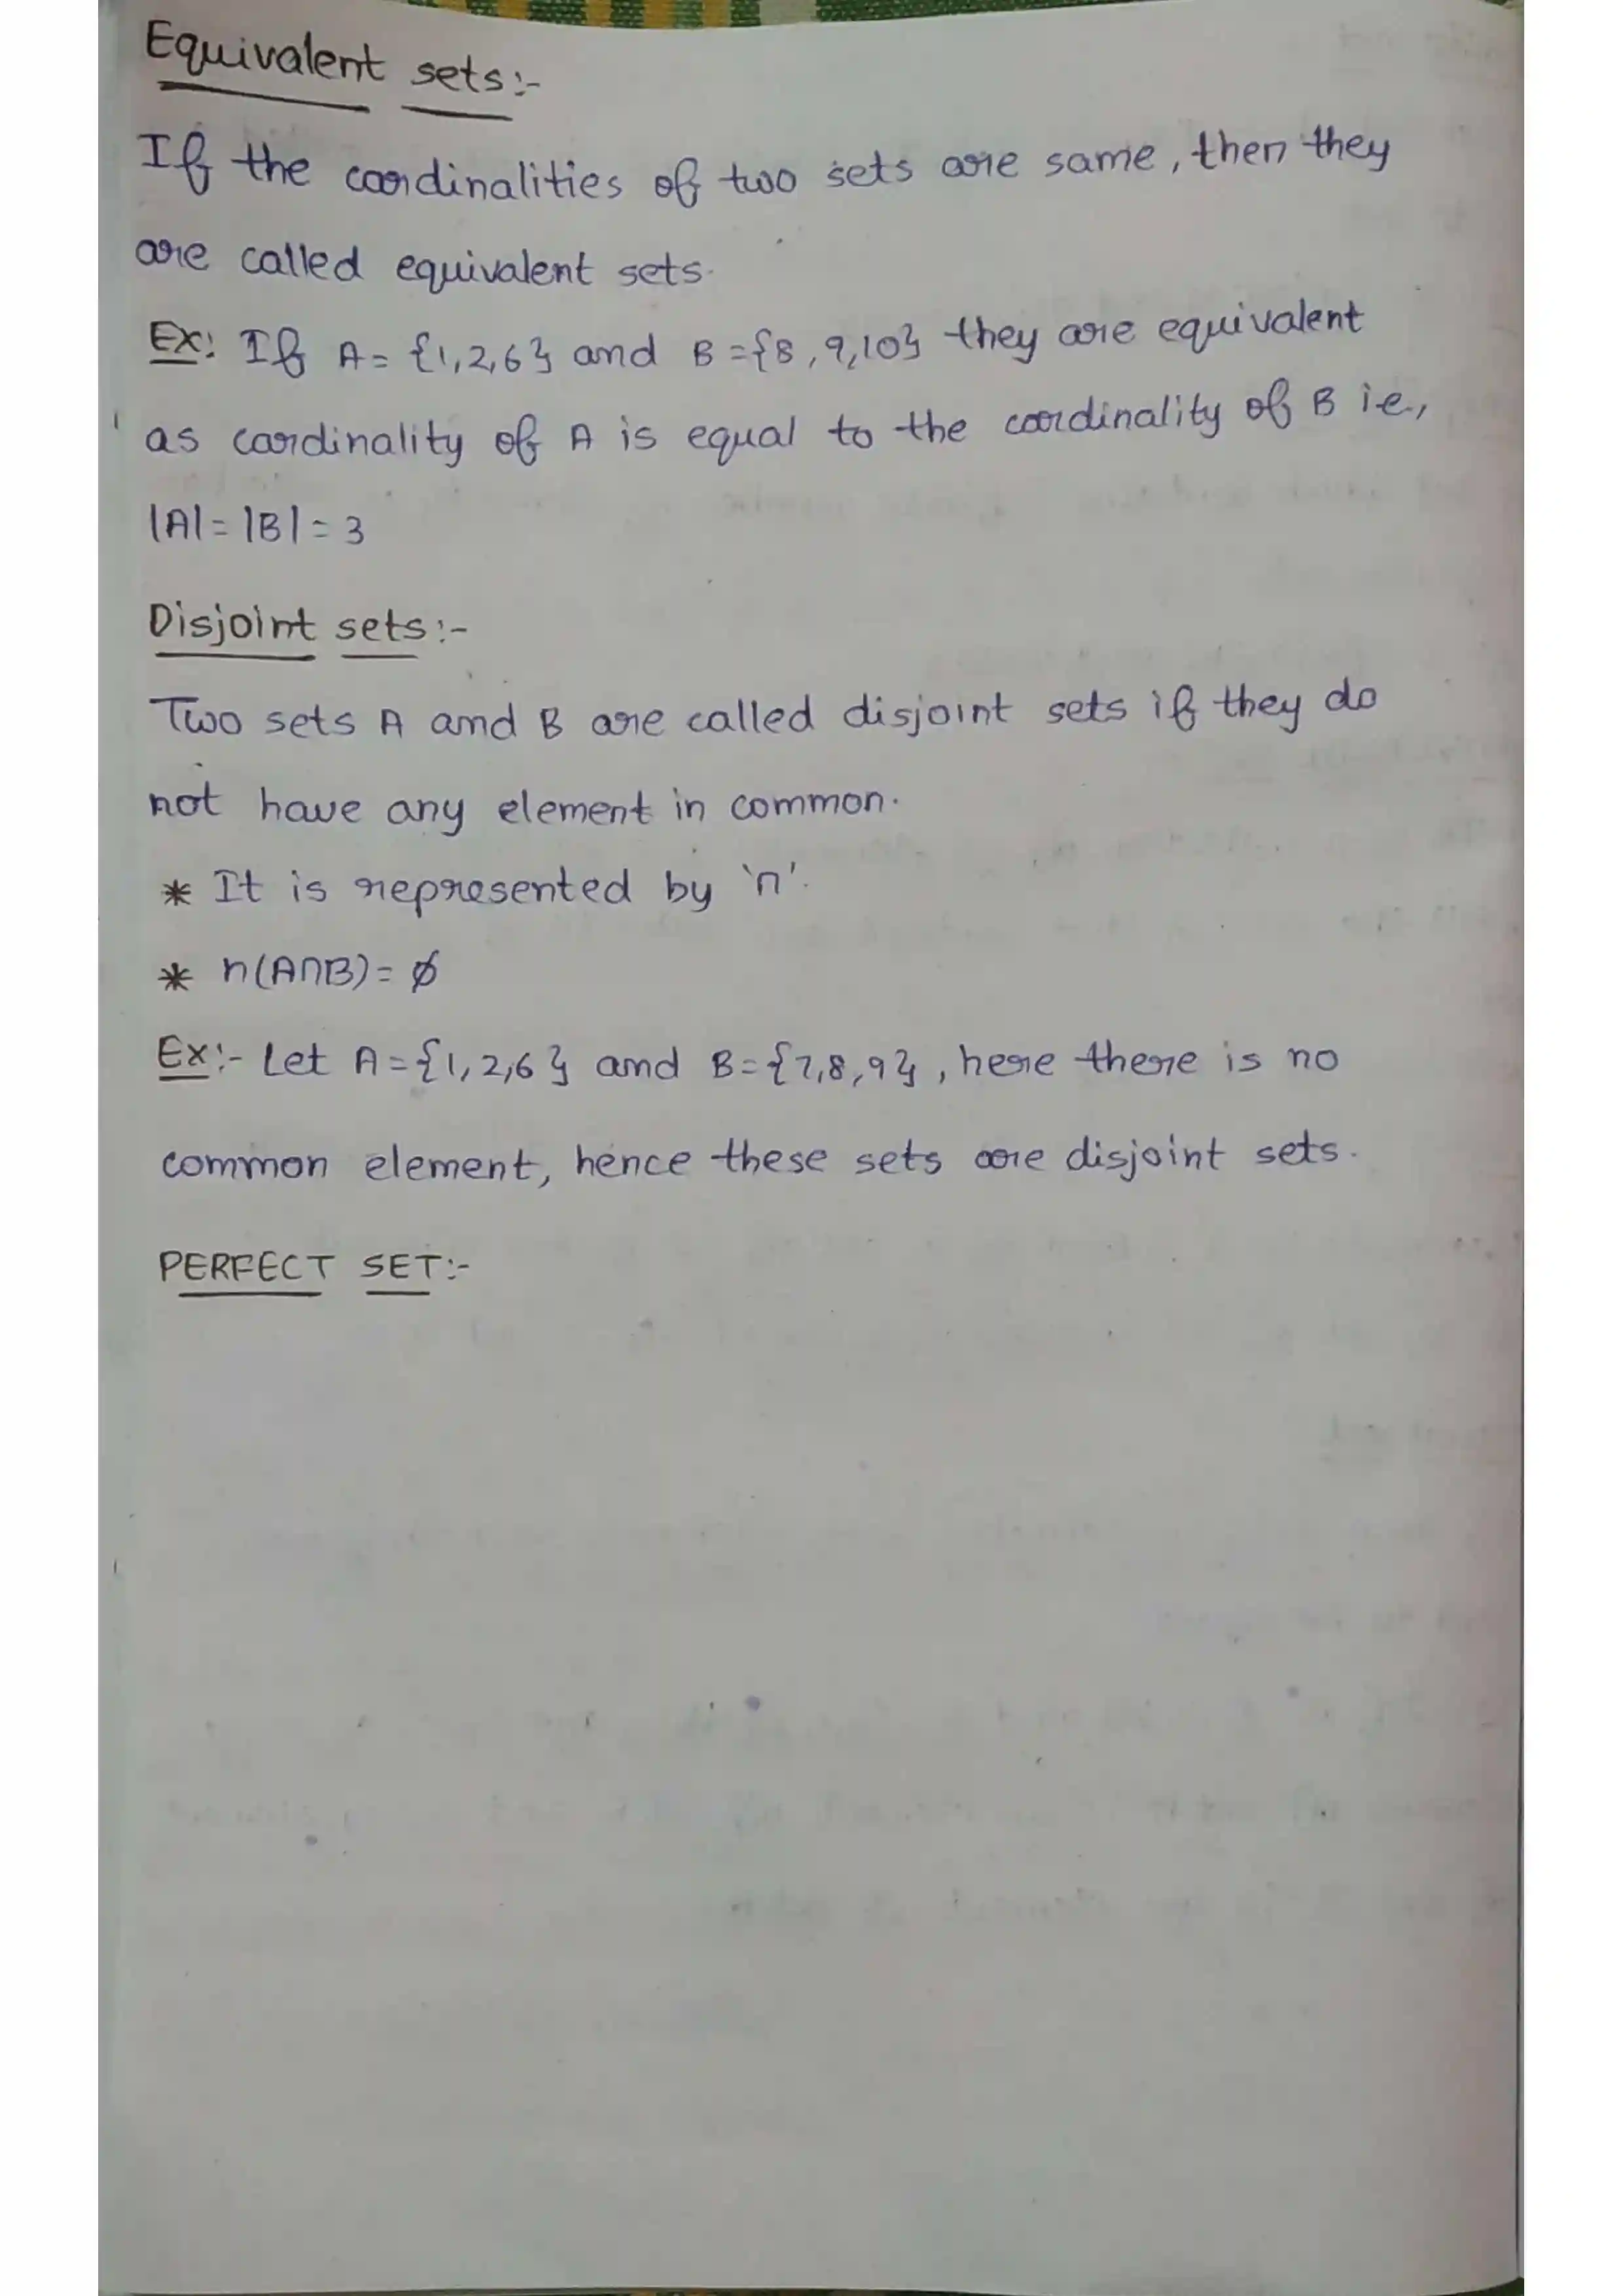 Equivalent sets:-
If the cardinalities of two sets are same, then they
are called equivalent sets.
Ex: If A = {1,2,6} and B = {8,9,10} they are equivalent
as cardinality of A is equal to the cardinality of B i.e.,
|A| = |B| = 3
Disjoint sets:-
Two sets A and B are called disjoint sets if they do
not have any element in common.
* It is represented by 'n'.
* n(A∩B) = ϕ
Ex:- Let A = {1,2,6} and B = {7,8,9}, here there is no
common element, hence these sets are disjoint sets.
PERFECT SET:-